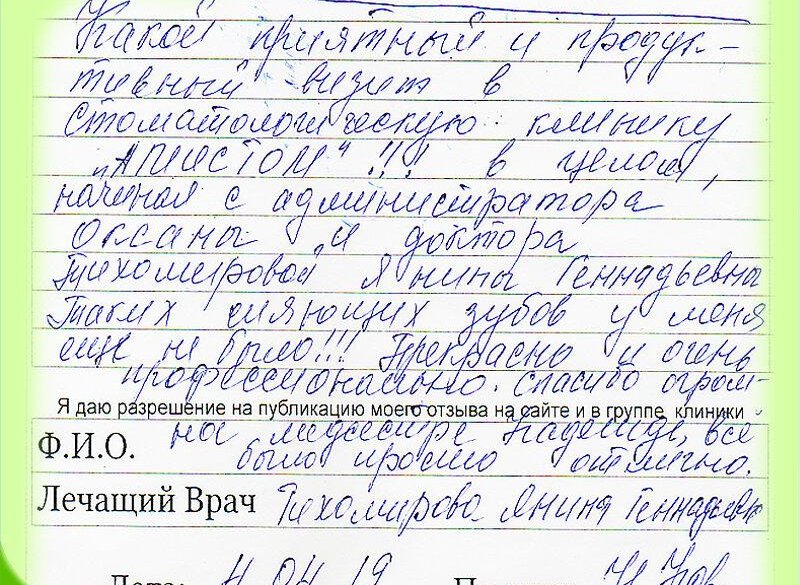 Какой приятный и продук-
тивный визит в
стоматологическую клинику
„Апистом“!!! в целом,
начиная с администратора
Оксаны и доктора
Тихомировой Янины Геннадьевны
Таких сияющих зубов у меня
ещё не было!!! Прекрасно и очень
профессионально. Спасибо огром-
Я даю разрешение на публикацию моего отзыва на сайте и в группе клиники
но медсестре Надежде, всё
Ф.И.О.
было просто отлично.
Лечащий Врач Тихомирова Янина Геннадьев
Дата: 4.04.19